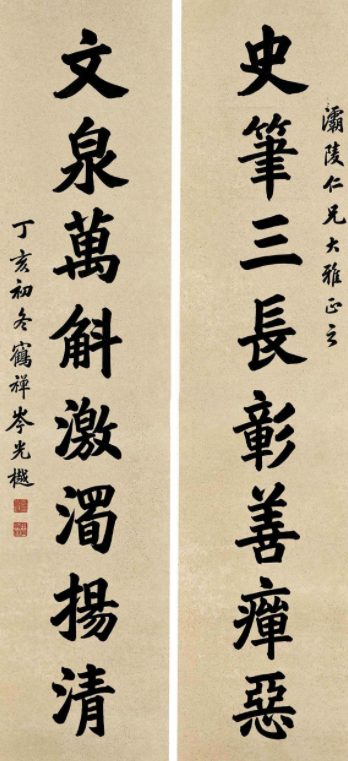 灞陵仁兄大雅正之
史筆三長彰善癉惡
文泉萬斛激濁揚清
丁亥初冬鶴禪岑光樾